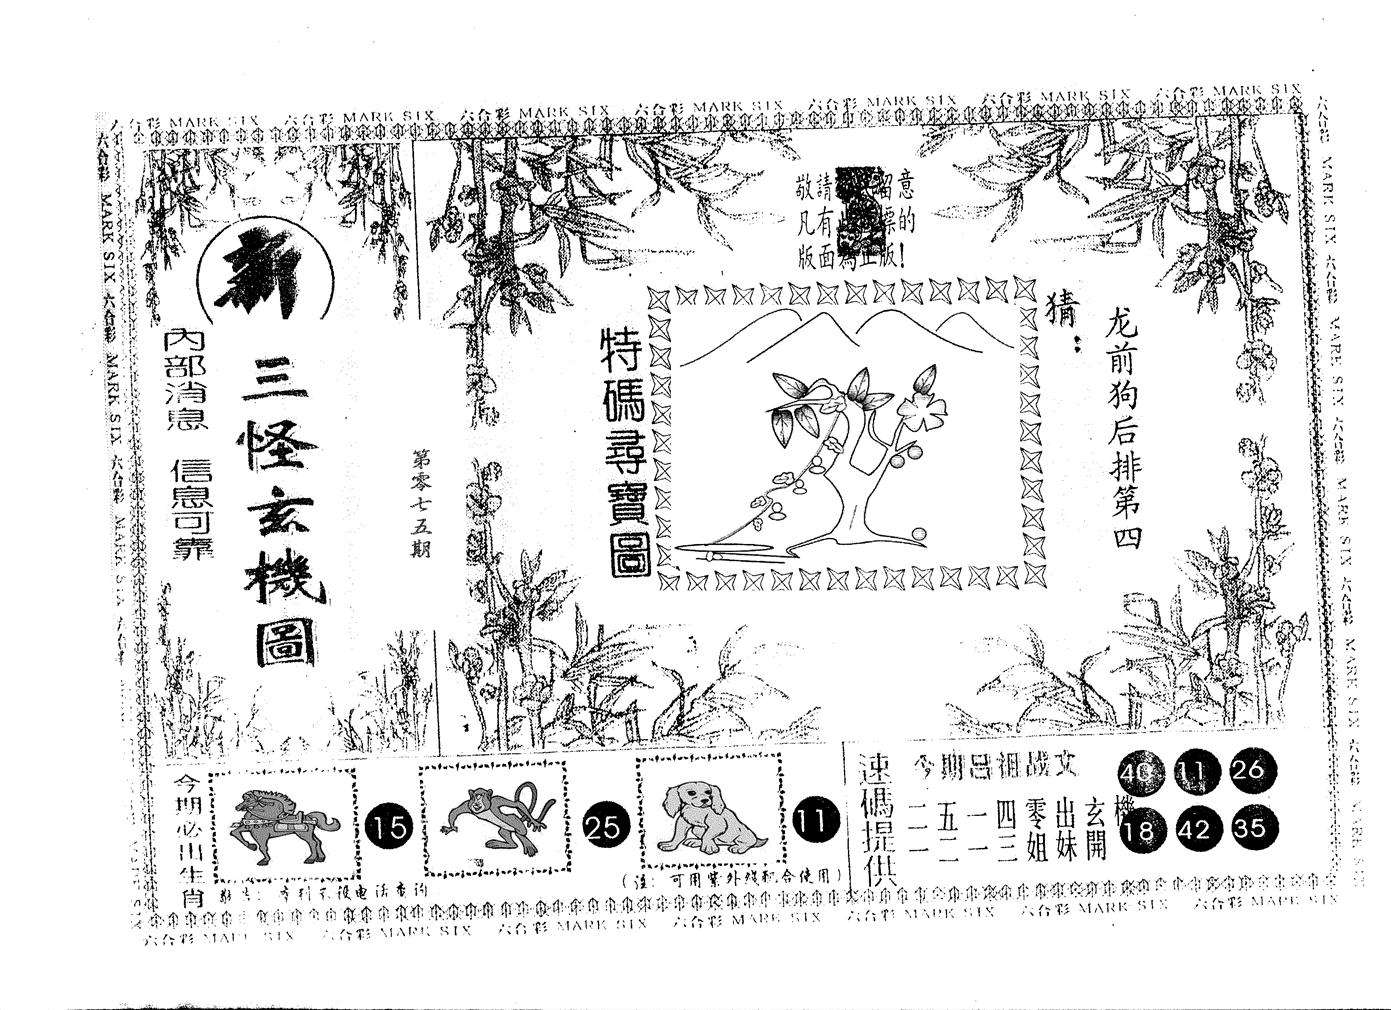 六合彩 MARK SIX 六合彩 MARK SIX 六合彩 MARK SIX 六合彩 MARK SIX 六合彩 MARK SIX 六合彩 MARK SIX 六合彩 MARK SIX
新
三怪玄機圖
內部消息 信息可靠
第零七五期
敬請 留意
凡有 標的
版面為正版!
特碼尋寶圖
猜:
龙前狗后排第四
今期必出生肖
15
25
11
(注: 可用紫外线配合使用)
速碼提供
今期吕祖战文
二五一四零出玄機
一二一三姐妹開
40 11 26
18 42 35
六合彩 MARK SIX 六合彩 MARK SIX 六合彩 MARK SIX 六合彩 MARK SIX 六合彩 MARK SIX 六合彩 MARK SIX 六合彩 MARK SIX